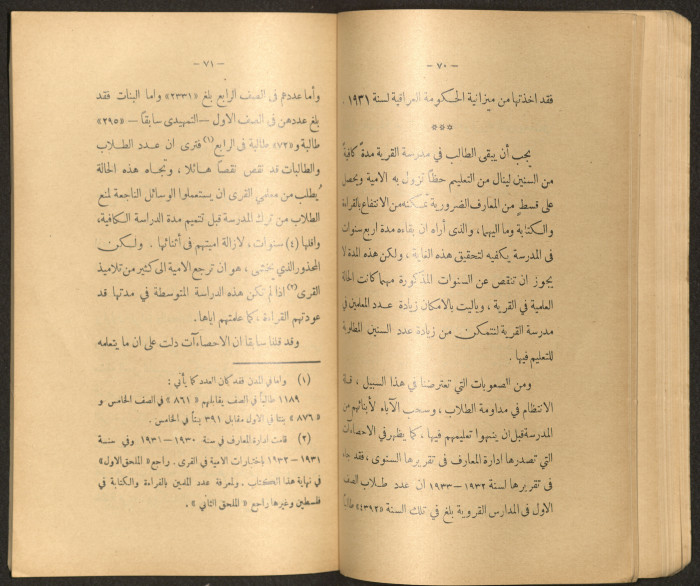 — ٧٠ —
فقد اخذتها من ميزانية الحكومة العراقية لسنة ١٩٣١ .
***
يجب أن يبقى الطالب في مدرسة القرية مدة كافية
من السنين لينال من التعليم حظاً تزول به الامية ويحصل
على قسط من المعارف الضرورية تمكنه من الانتفاع بالقراءة
والكتابة وما اليهما ، والذى أراه ان بقاءه مدة اربع سنوات
في المدرسة يكفيه لتحقيق هذه الغاية ، ولكن هذه المدة لا
يجوز ان تنقص عن السنوات المذكورة مهما كانت الحالة
العلمية في القرية ، وياليت بالامكان زيادة عدد المعلمين في
مدرسة القرية لنتمكن من زيادة عدد السنين المطلوبة
للتعليم فيها .
ومن الصعوبات التي تعترضنا في هذا السبيل ، قلة
الانتظام في مداومة الطلاب ، وسحب الآباء لأبنائهم من
المدرسة قبل ان ينهوا تعليمهم فيها ، كما يظهر في الاحصاءآت
التي تصدرها ادارة المعارف في تقريرها السنوى ، فقد جاء
في تقريرها لسنة ١٩٣٢—١٩٣٣ ان عدد طلاب الصف
الاول في المدارس القروية بلغ في تلك السنة «٤٣٩٢» طالباً
— ٧١ —
وأما عددهم في الصف الرابع بلغ «٢٣٣١» واما البنات فقد
بلغ عددهن في الصف الاول —التمهيدى سابقاً— «٢٩٥»
طالبة و«٧٢» طالبة في الرابع(١) فترى ان عدد الطلاب
والطالبات قد نقص نقصاً هائلا ، وتجاه هذه الحالة
يُطلب من معلمي القرى ان يستعملوا الوسائل الناجعة لمنع
الطلاب من ترك المدرسة قبل تتميم مدة الدراسة الكافية،
واقلها (٤) سنوات ، لازالة اميتهم في أثنائها . ولكن
المحذور الذي يخشى ، هو ان ترجع الامية الى كثير من تلاميذ
القرى(٢) اذا لم تكن هذه الدراسة المتوسطة في مدتها قد
عودتهم القراءة ، كما علمتهم اياها.
وقد قلنا سابقا ان الاحصاءآت دلت على ان ما يتعلمه
(١) واما في المدن فقد كان العدد كما يأتي :
١١٨٩ طالباً في الصف يقابلهم « ٨٦١ » في الصف الخامس و
« ٨٧٦ » بنتا في الاول مقابل ٣٩١ بنتاً في الخامس .
(٢) قامت ادارة المعارف في سنة ١٩٣٠—١٩٣١ وفي سنة
١٩٣١—١٩٣٢ باختبارات الامية في القرى . راجع «الملحق الاول»
في نهاية هذا الكتاب . ولمعرفة عدد الملمين بالقراءة والكتابة في
فلسطين وغيرها راجع « الملحق الثاني » .